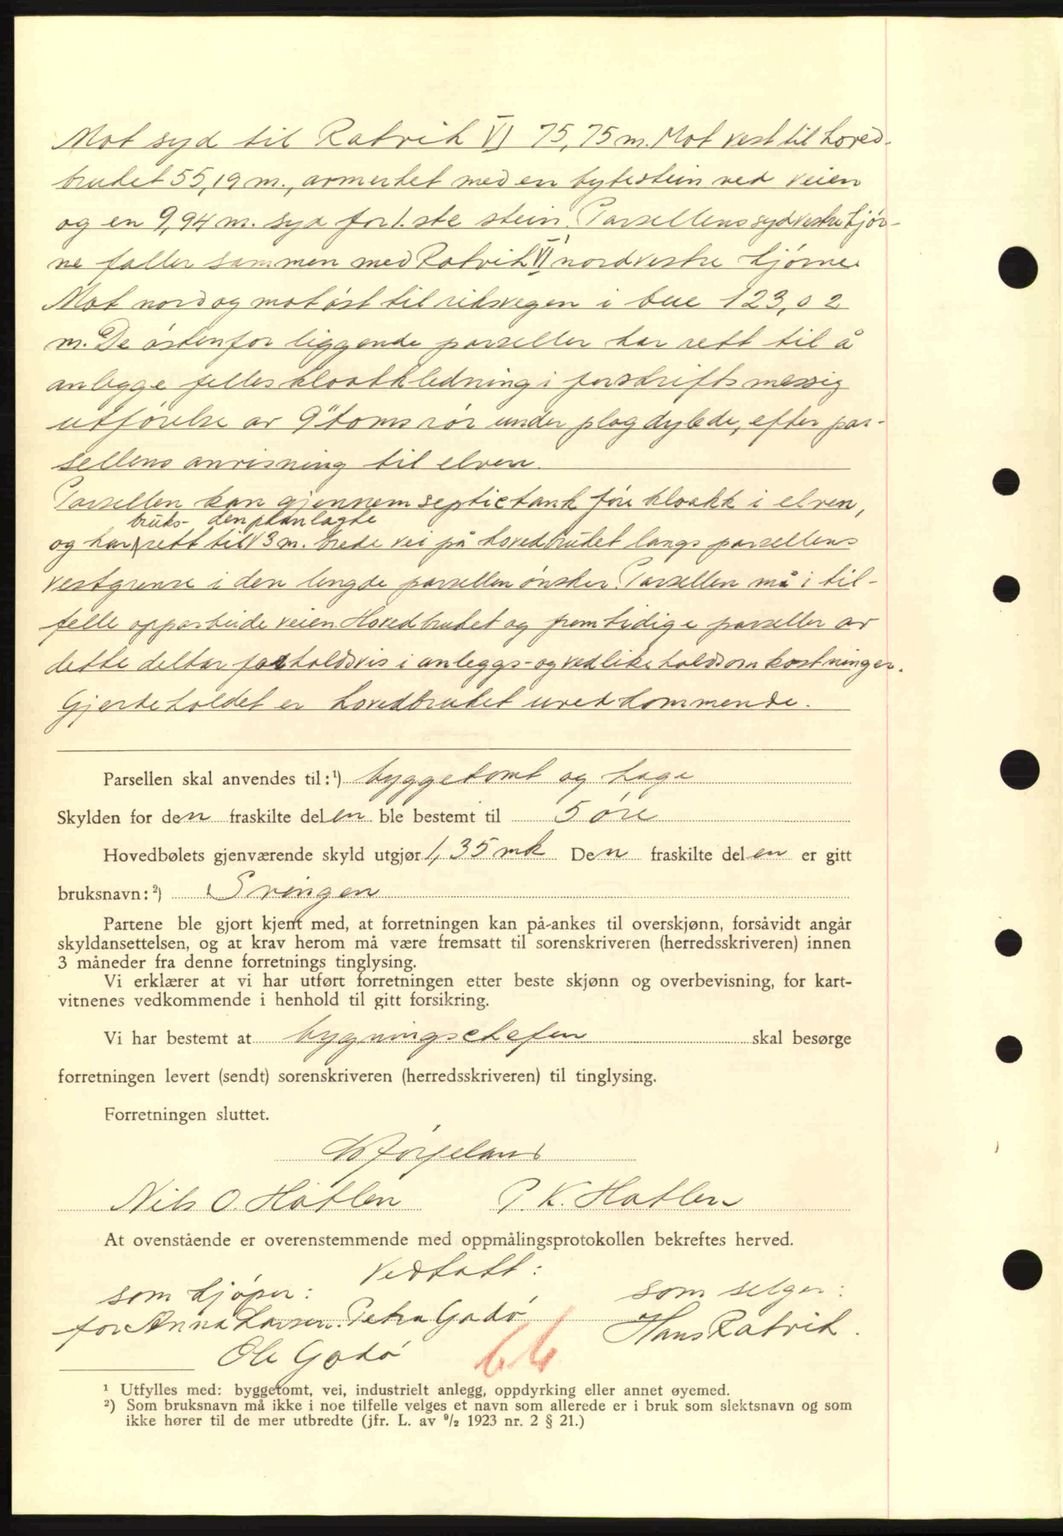 Mot syd til Ratvik VI 75,75 m. Mot vest til hoved-
bruket 55,19 m., avmerket med en bytestein ved veien
og en 9,94 m. syd for 1.ste stein. Parsellens sydvestre hjør-
ne faller sammen med Ratvik VI nordvestre hjørne.
Mot nord og mot øst til riksvegen i bue 123,02
m. De østenfor liggende parseller har rett til å
anlegge felles kloakkledning i forskriftsmessig
utførelse av 9" toms rør under plogdybde, efter par-
sellens anvisning til elven.
Parsellen kan gjennem septictank føre kloakk i elven,
bruks- den planlagte
og har rett til 3 m. brede vei på hovedbruket langs parsellens
vestgrense i den lengde parsellen ønsker. Parsellen må i til-
felle opparbeide veien. Hovedbruket og fremtidige parseller av
dette deltar forholdsvis i anleggs- og vedlikeholdsomkostninger.
Gjerdeholdet er hovedbruket uvedkommende.
Parsellen skal anvendes til:¹) byggetomt og hage
Skylden for den fraskilte delen ble bestemt til 5 øre
Hovedbølets gjenværende skyld utgjør 1,35 mk Den fraskilte delen er gitt
bruksnavn:²) Svingen
Partene ble gjort kjent med, at forretningen kan på-ankes til overskjønn, forsåvidt angår
skyldansettelsen, og at krav herom må være fremsatt til sorenskriveren (herredsskriveren) innen
3 måneder fra denne forretnings tinglysing.
Vi erklærer at vi har utført forretningen etter beste skjønn og overbevisning, for kart-
vitnenes vedkommende i henhold til gitt forsikring.
Vi har bestemt at bygningschefen skal besørge
forretningen levert (sendt) sorenskriveren (herredsskriveren) til tinglysing.
Forretningen sluttet.
Nils O. Hatlen P. K. Hatlen
At ovenstående er overenstemmende med oppmålingsprotokollen bekreftes herved.
Vedtatt:
som kjøper: som selger:
for Anna Larsen. Petra Godø Hans Ratvik.
Ole Godø 66
¹ Utfylles med: byggetomt, vei, industrielt anlegg, oppdyrking eller annet øyemed.
²) Som bruksnavn må ikke i noe tilfelle velges et navn som allerede er i bruk som slektsnavn og som
ikke hører til de mer utbredte (jfr. L. av ⁹/₂ 1923 nr. 2 § 21.)